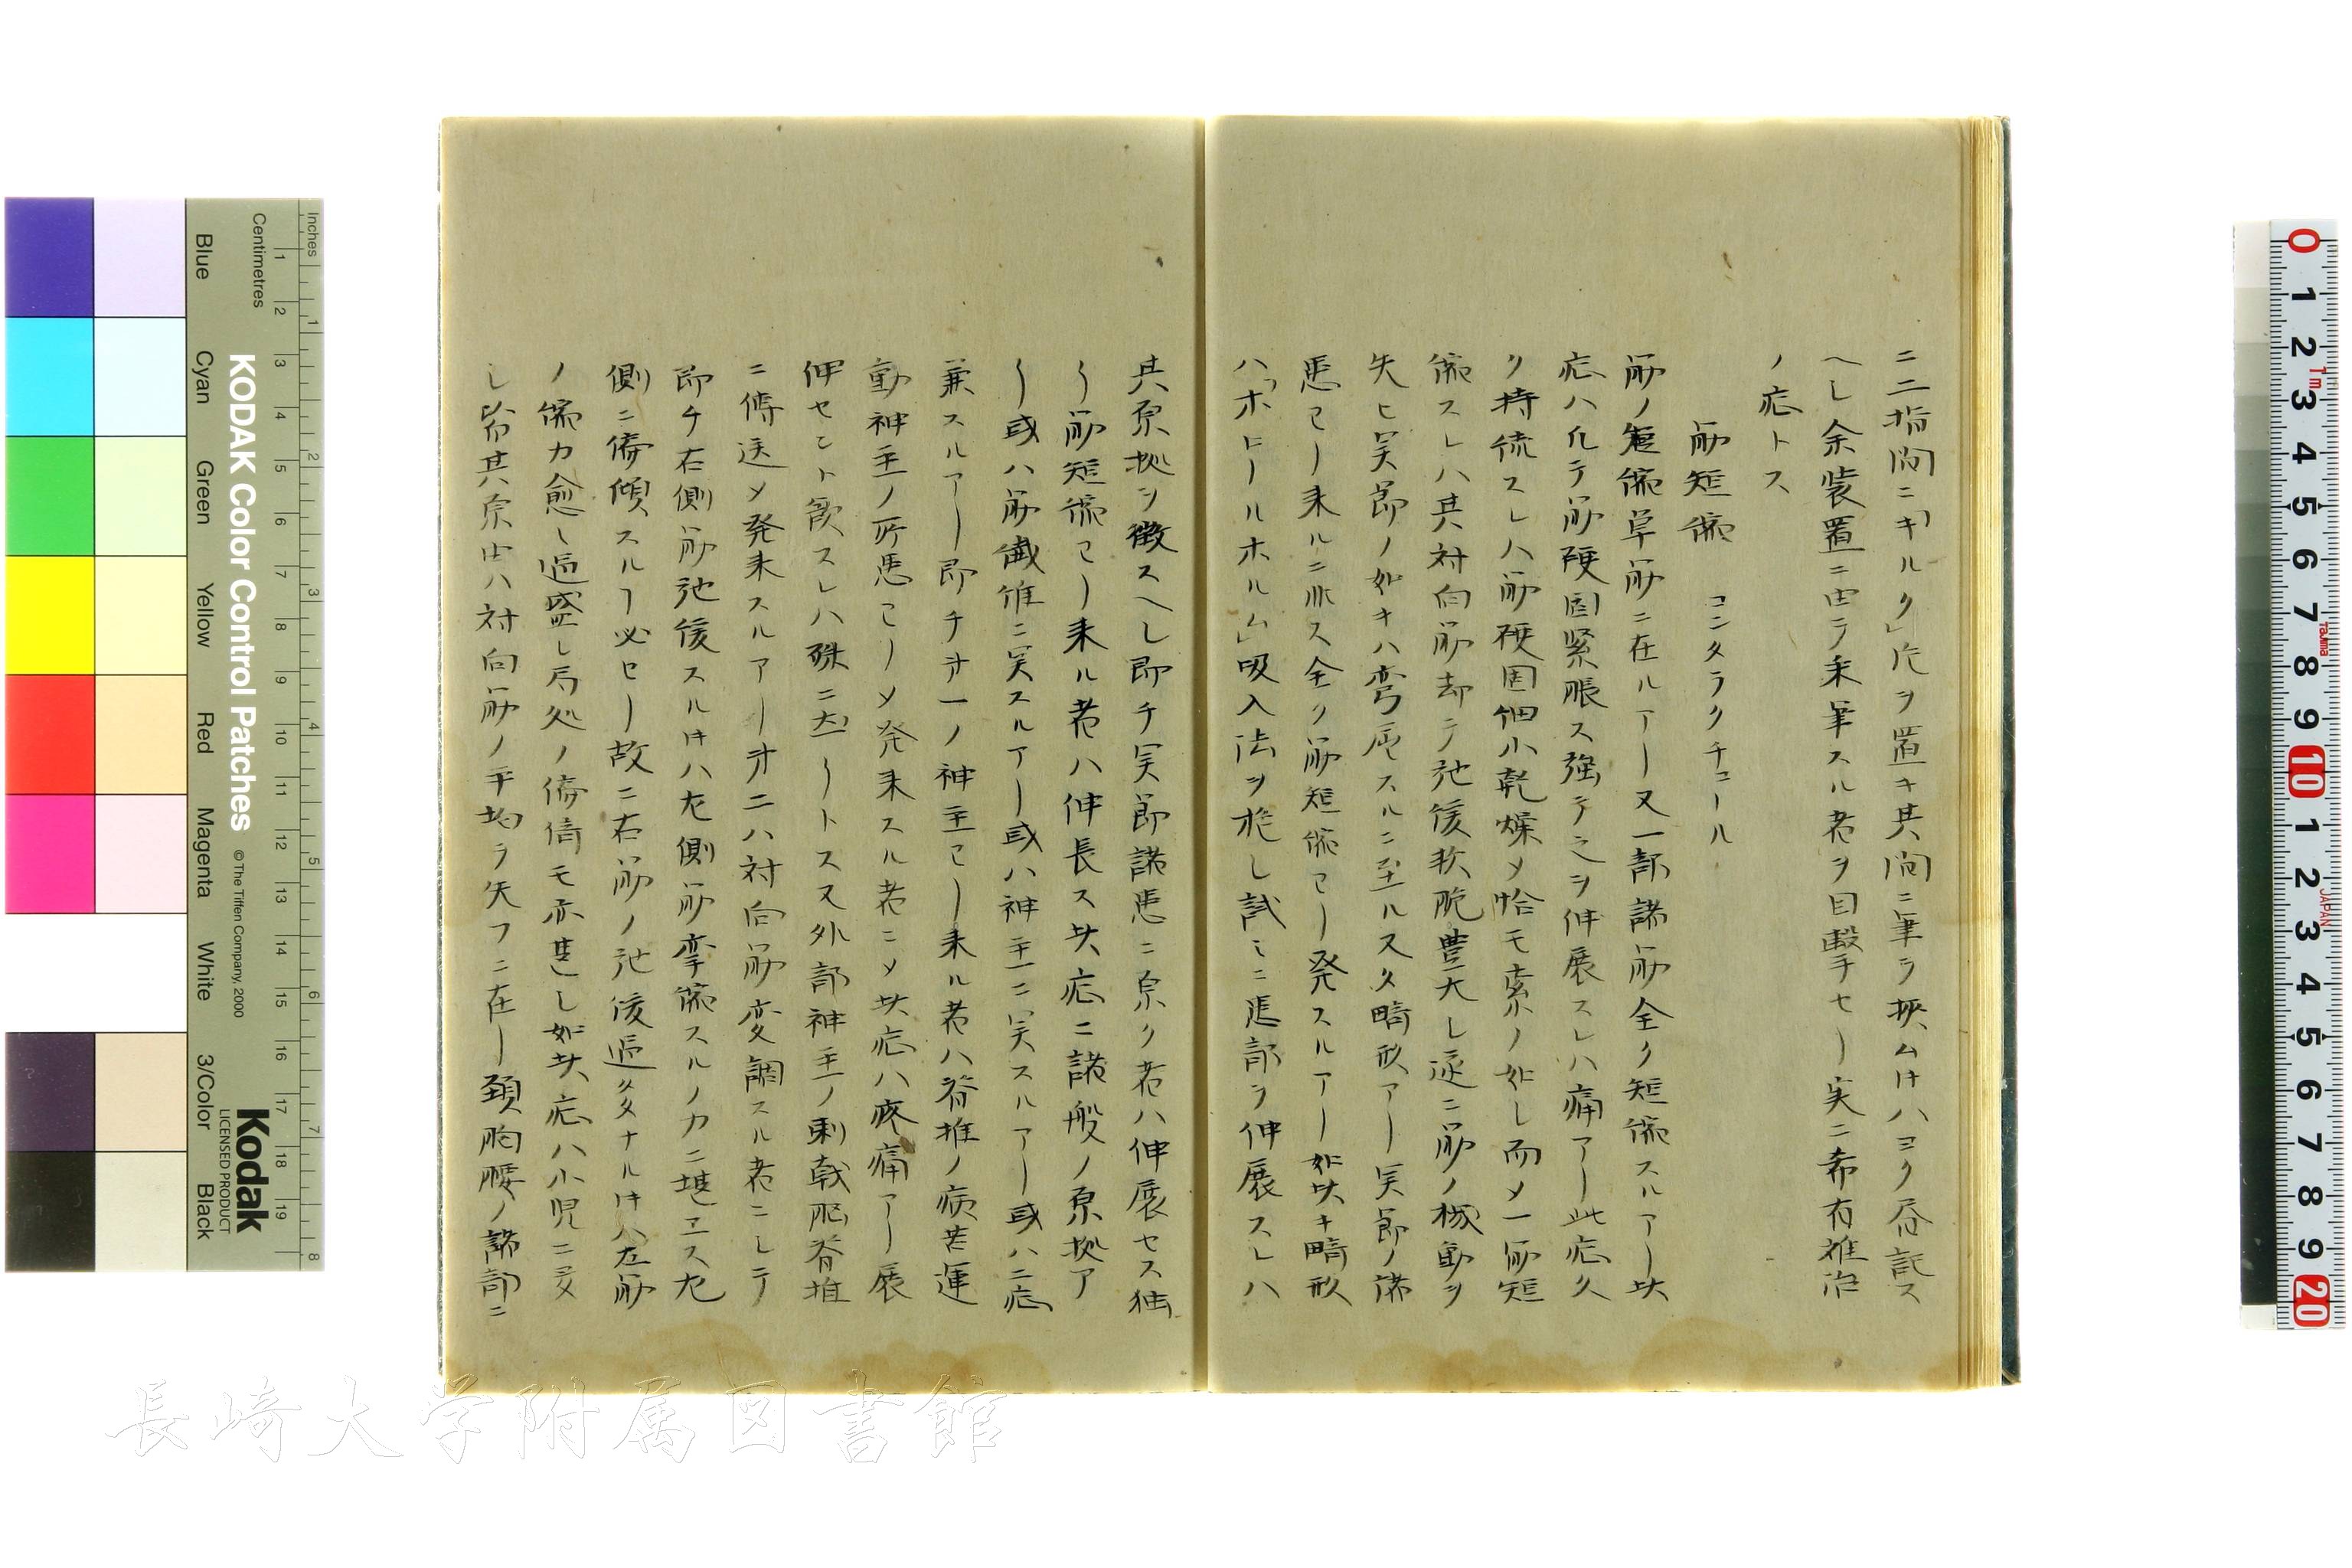 ニ二指間ニキルク」片ヲ置キ其間ニ筆ヲ挾ム𪜈ハヨク容認ス
ヘし余装置ニ由テ執筆スル者ヲ目撃セリ実ニ希有難治
ノ症トス
筋短縮 コンタラクチュール
筋ノ短縮単筋ニ在ルアリ又一部諸筋全ク短縮スルアリ此
症ハ凡テ筋硬固緊張ス強テ之ヲ伸展スレハ痛アリ此症久
ク持続スレハ筋硬固細小乾燥メ恰モ索ノ如し而メ一筋短
縮スレハ其対向筋却テ弛緩軟脆豊大し遂ニ筋ノ機動ヲ
失ヒ関節ノ如キハ弯屈スルニ至ル又畸形アリ関節ノ諸
患ヨリ来ルニ非ス全ク筋短縮ヨリ発スルアリ如此キ畸形
ハ「ホロールホルム」吸入法ヲ施し試ミニ患部ヲ伸展スレハ
其原拠ヲ徴スヘし即チ関節諸患ニ原ク者ハ伸展セス独
リ筋短縮ヨリ来ル者ハ伸長ス此症ニ諸般ノ原拠ア
リ或ハ筋繊維ニ関スルアリ或ハ神圣ニ関スルアリ或ハ二症
兼スルアリ即チ才一ノ神圣ヨリ来ル者ハ脊椎ノ病若運
動神圣ノ所患ヨリメ発来スル者ニメ此症ハ疼痛アリ展
伸セント欲スレハ殊ニ甚シトス又外部神圣ノ刺戟脳脊椎
ニ傳送メ発来スルアリ才二ハ対向筋変調スル者ニして
即チ右側筋弛緩スル𪜈ハ左側筋挛縮スルノ力ニ堪エス左
側ニ偏傾スルヿ必セリ故ニ右筋ノ弛緩過多ナル𪜈ハ左筋
ノ縮力愈し過盛し局処ノ偏倚モ亦甚し如此症ハ小児ニ多
し皆其原由ハ対向筋ノ平均ヲ失フニ在リ頚胸腰ノ諸部ニ
KODAK Color Control Patches
© The Tiffen Company, 2000
Kodak
LICENSED PRODUCT
Inches
Centimetres
Blue Cyan Green Yellow Red Magenta White 3/Color Black
長崎大学附属図書館